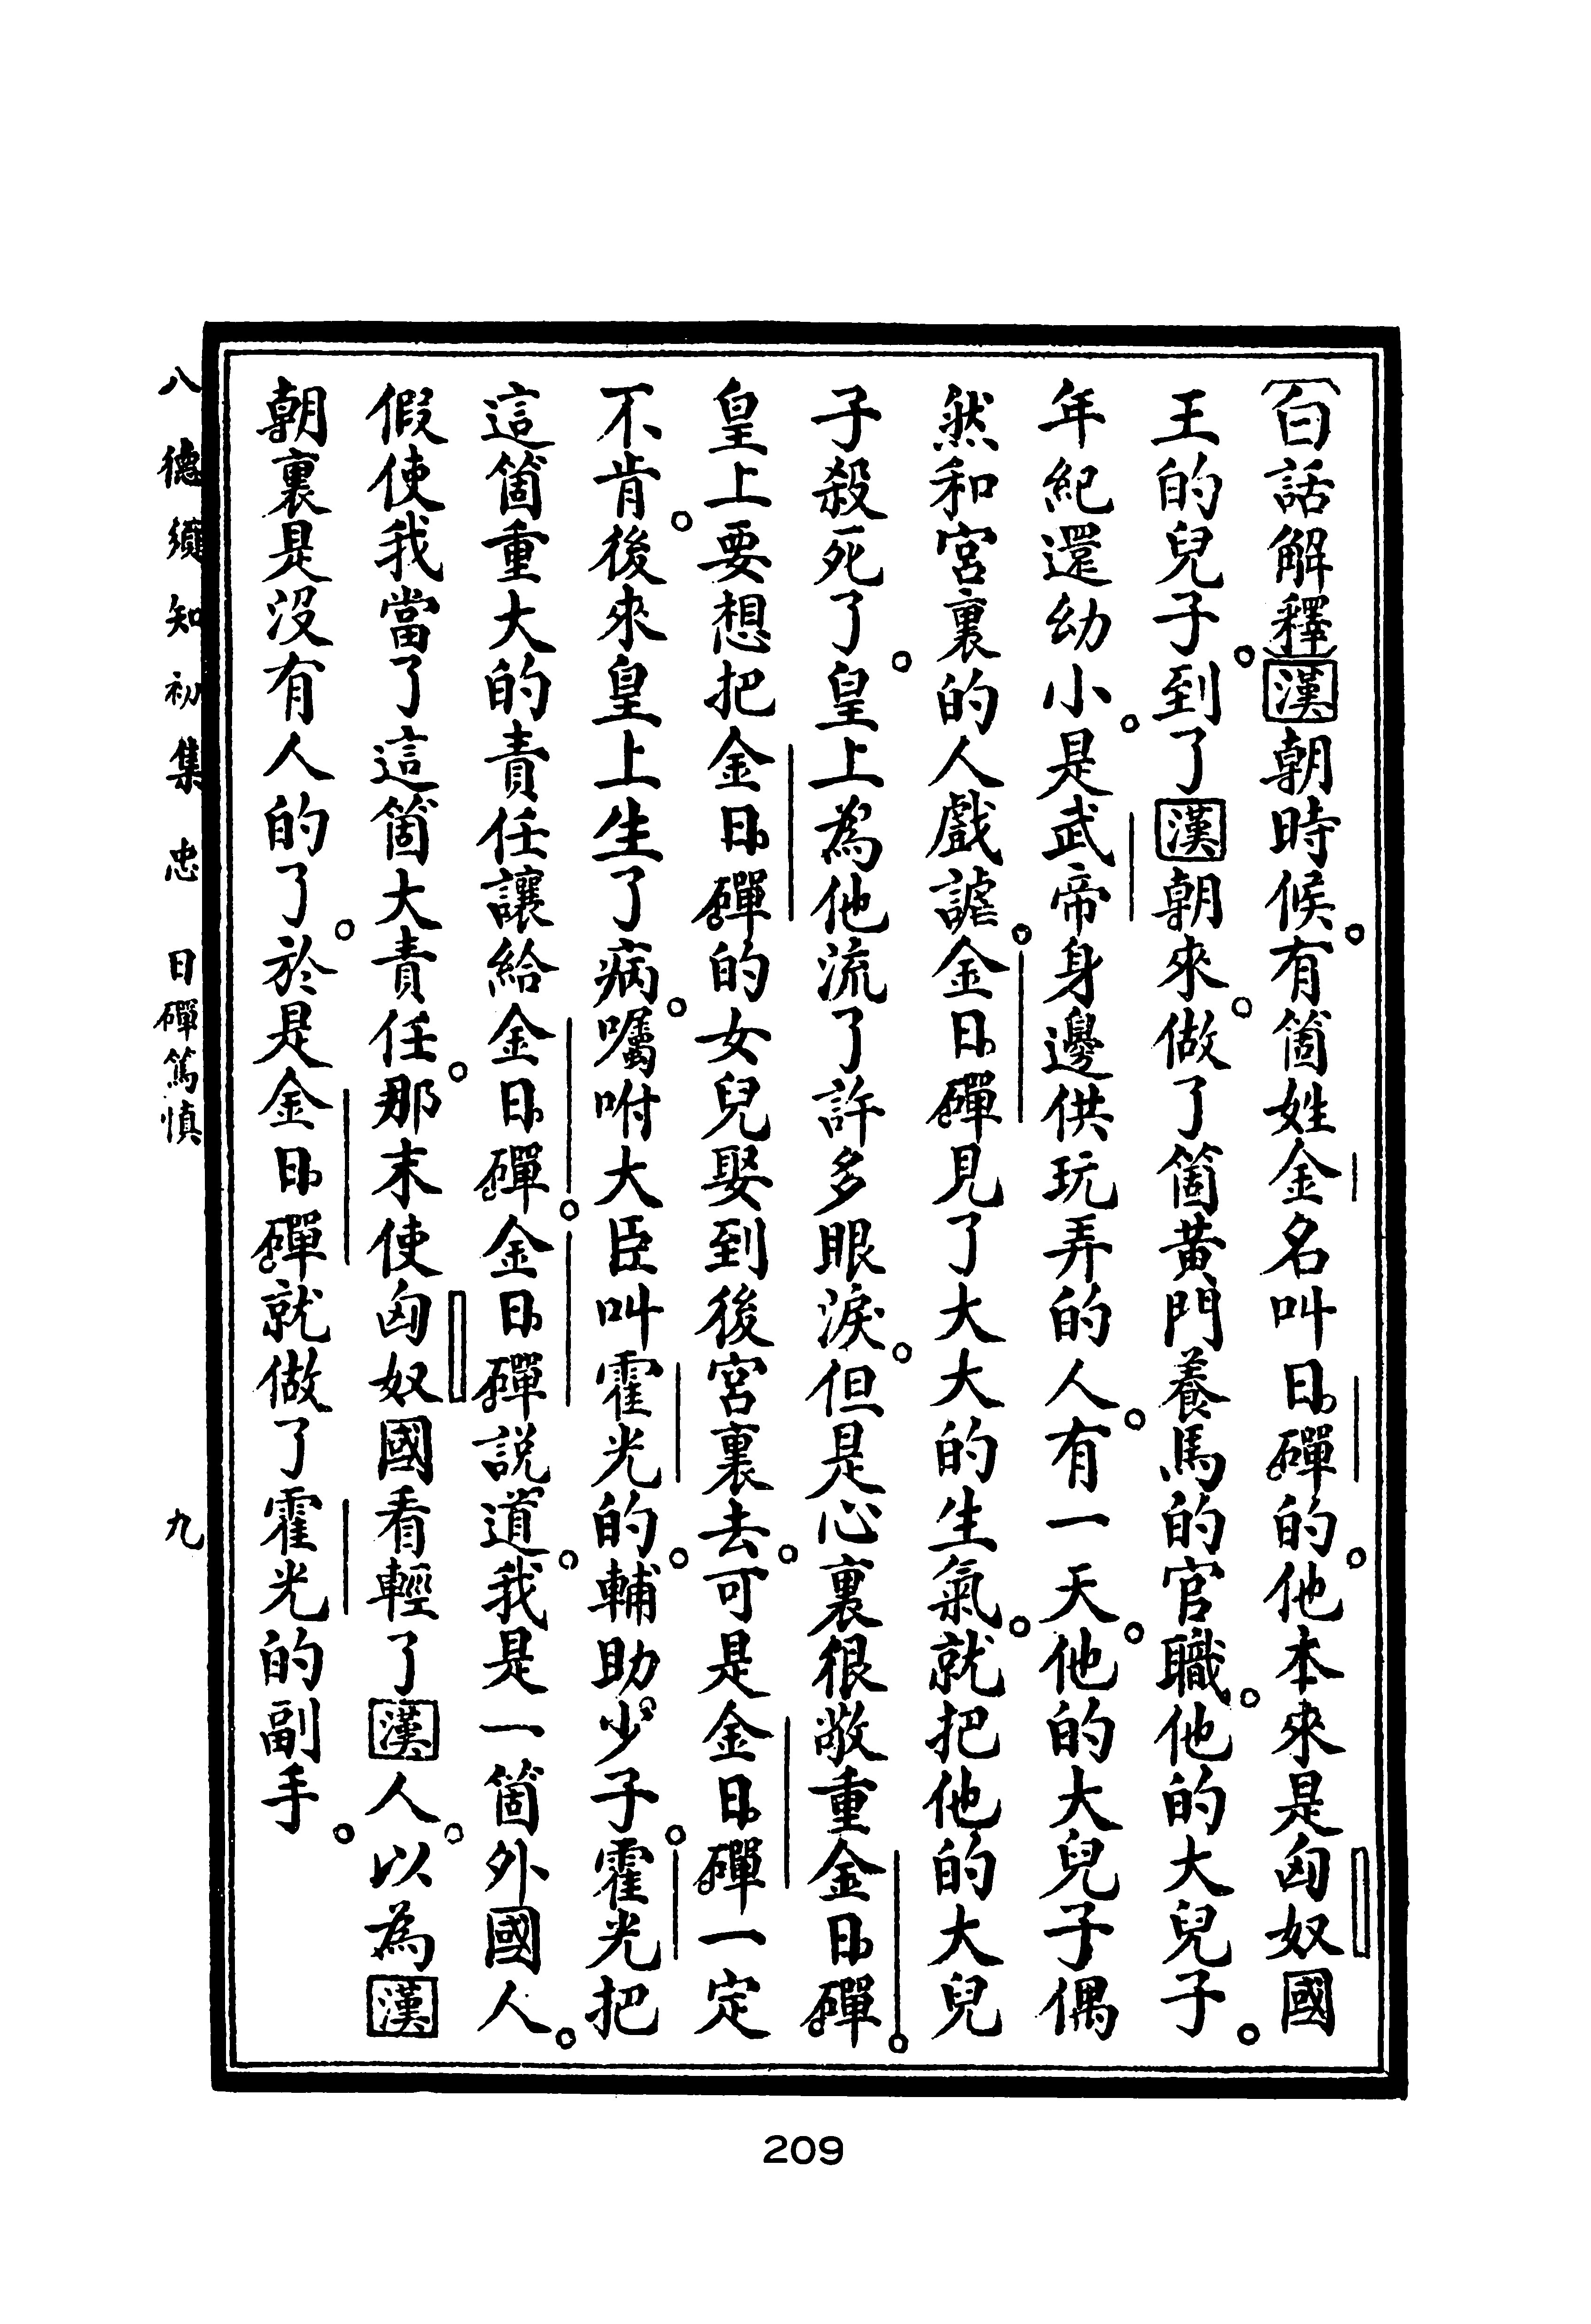 〔白話解釋〕漢朝時候。有箇姓金名叫日磾的。他本來是匈奴國
王的兒子。到了漢朝來。做了箇黃門養馬的官職。他的大兒子。
年紀還幼小。是武帝身邊供玩弄的人。有一天。他的大兒子偶
然和宮裏的人戲謔。金日磾見了大大的生氣。就把他的大兒
子殺死了。皇上為他流了許多眼淚。但是心裏很敬重金日磾。
皇上要想把金日磾的女兒娶到後宮裏去。可是金日磾一定
不肯。後來皇上生了病。囑咐大臣叫霍光的。輔助少子。霍光把
這箇重大的責任讓給金日磾。金日磾說道。我是一箇外國人。
假使我當了這箇大責任。那末使匈奴國看輕了漢人。以為漢
朝裏是沒有人的了。於是金日磾就做了霍光的副手。
八德須知初集 忠 日磾篤慎 九
209